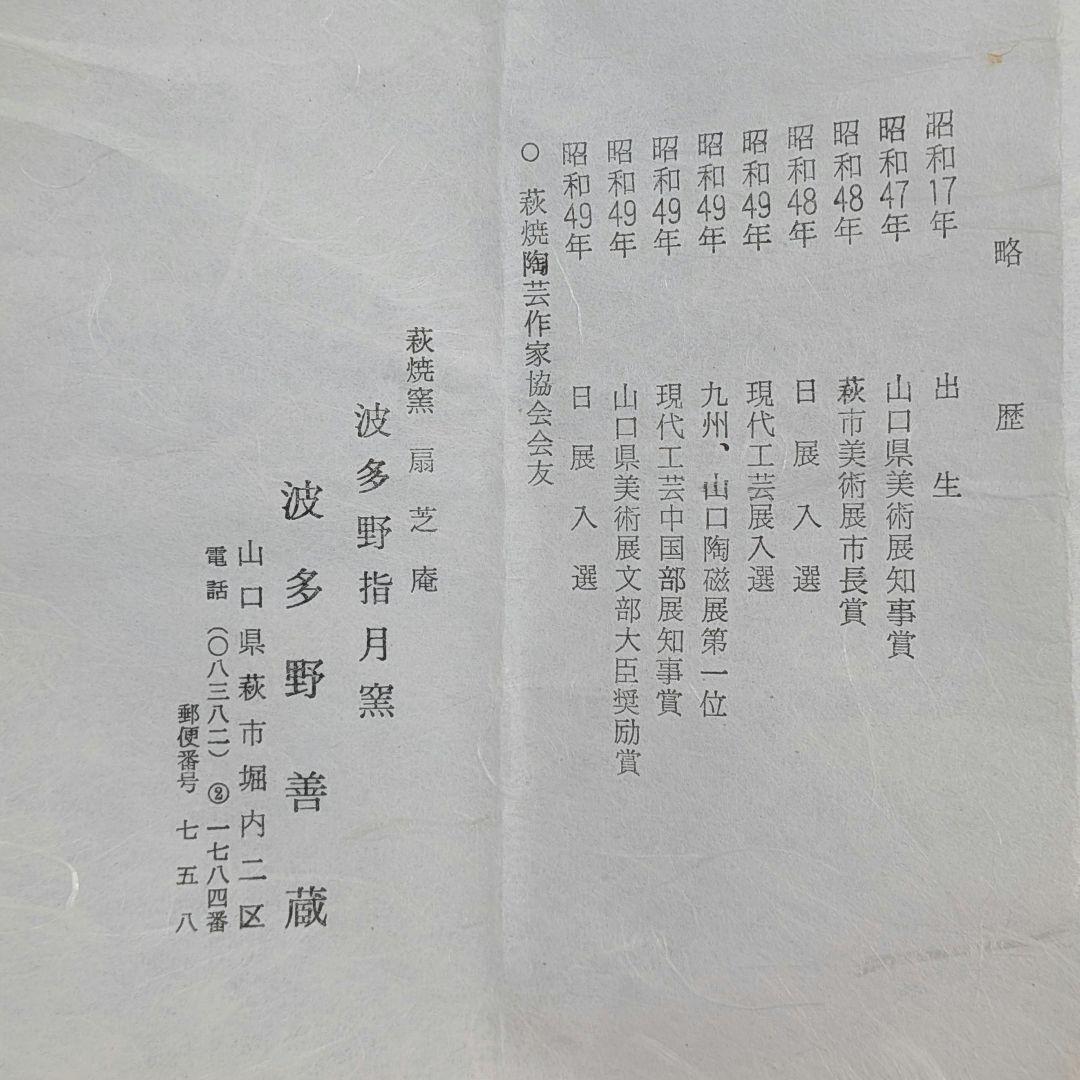 略歴
昭和17年 出生
昭和47年 山口県美術展知事賞
昭和48年 萩市美術展市長賞
昭和48年 日展入選
昭和49年 現代工芸展入選
昭和49年 九州、山口陶磁展第一位
昭和49年 現代工芸中国部展知事賞
昭和49年 山口県美術展文部大臣奨励賞
昭和49年 日展入選
○ 萩焼陶芸作家協会会友
萩焼窯 扇芝庵
波多野指月窯
波多野善蔵
山口県萩市堀内二区
電話（〇八三八二）②一七八四番
郵便番号 七五八